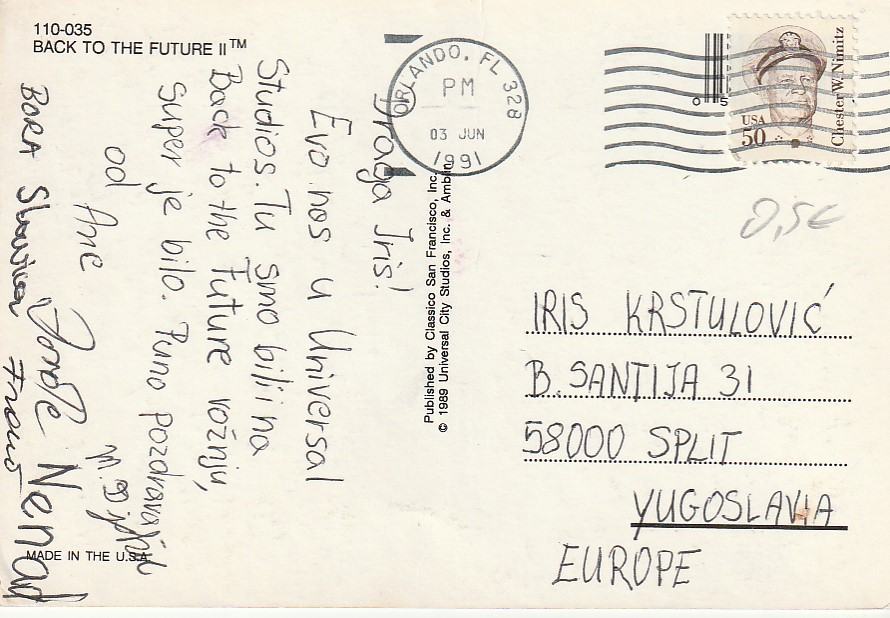 110-035
BACK TO THE FUTURE II™
Draga Iris!
Evo nas u Universal
Studios. Tu smo bili na
Back to the Future vožnju,
Super je bilo. Puno pozdrava
od Ane
BORA
Nenad
MADE IN THE U.S.A.
Published by Classico San Francisco, Inc.
© 1989 Universal City Studios, Inc. & Amblin
ORLANDO, FL 328
PM
03 JUN
1991
05
USA
50
Chester W. Nimitz
0,5€
IRIS KRSTULOVIĆ
B. SANTIJA 31
58000 SPLIT
YUGOSLAVIA
EUROPE